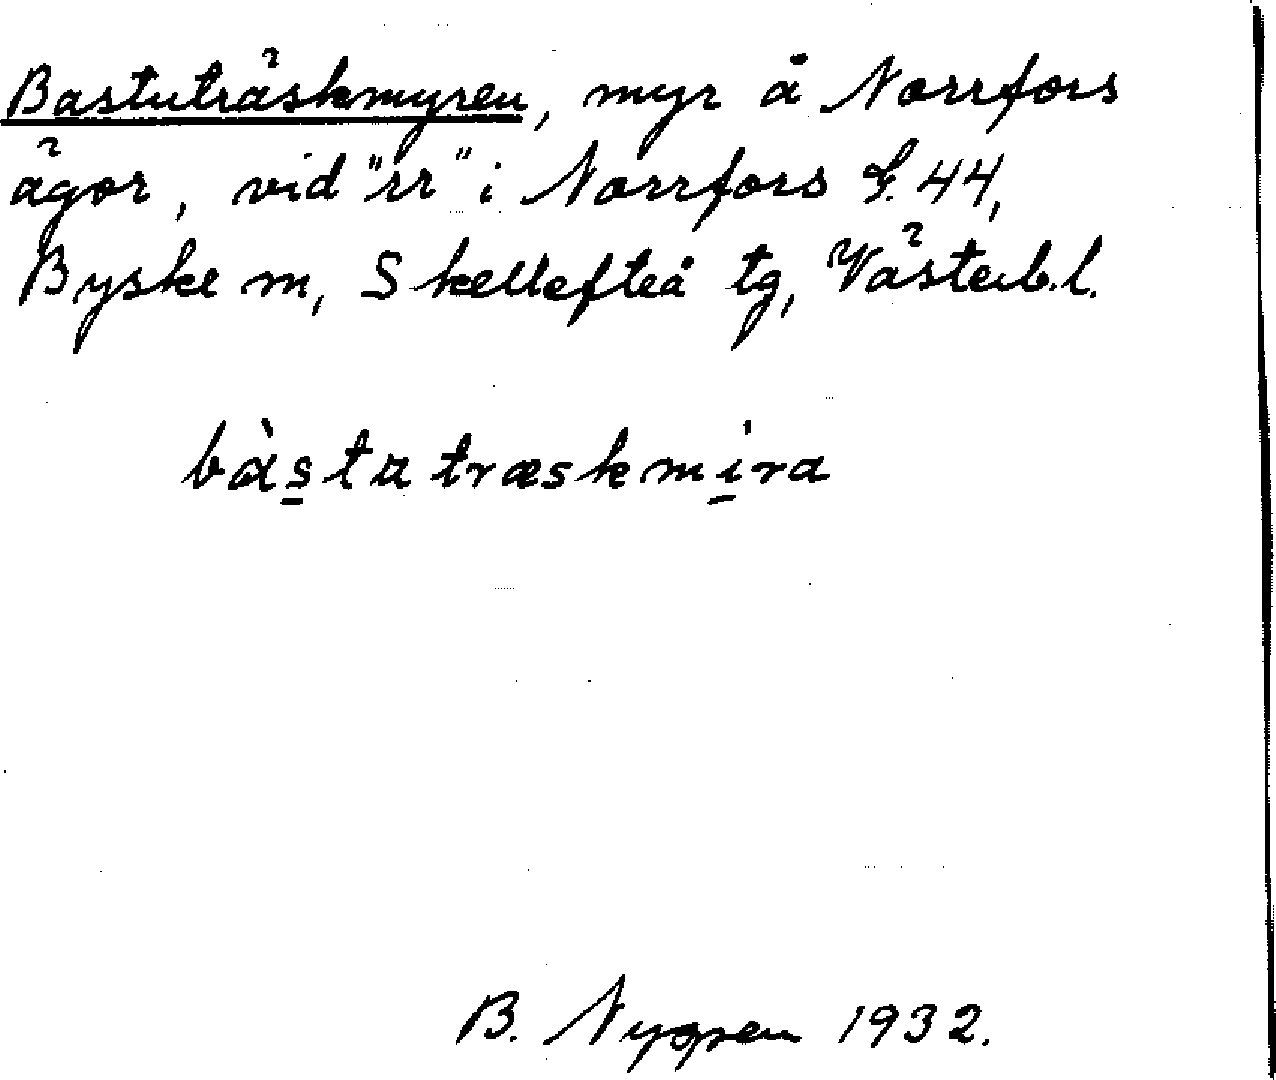 Bastuträskmyren, myr å Norrfors
ägor, vid "rr" i Norrfors G. 44,
Byske m, Skellefteå tg, Västerb.l.
bàstatræskmira
B. Nygren 1932.